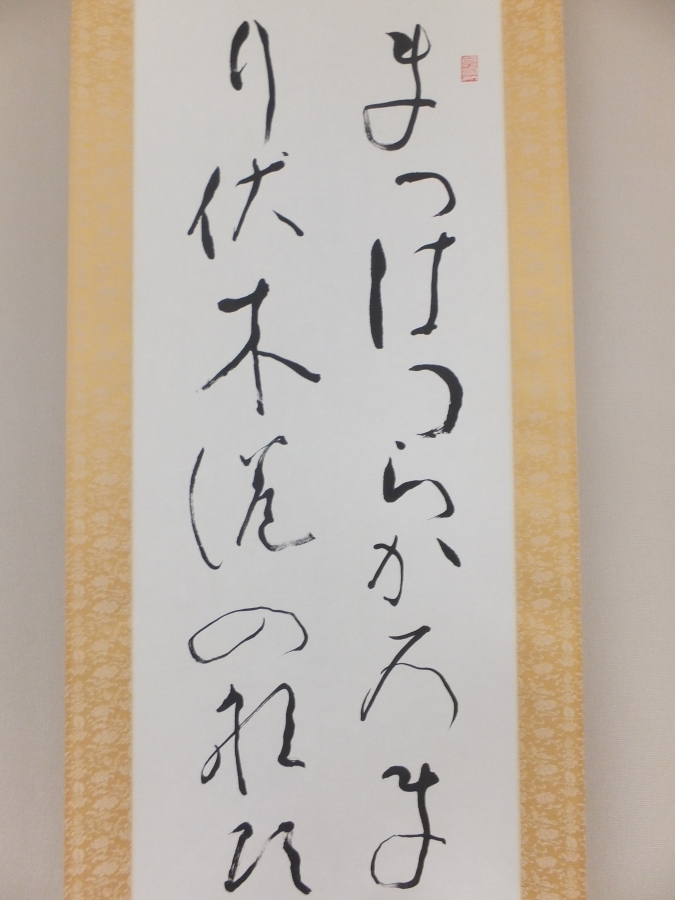 まつはつらかろま
り伏木港の